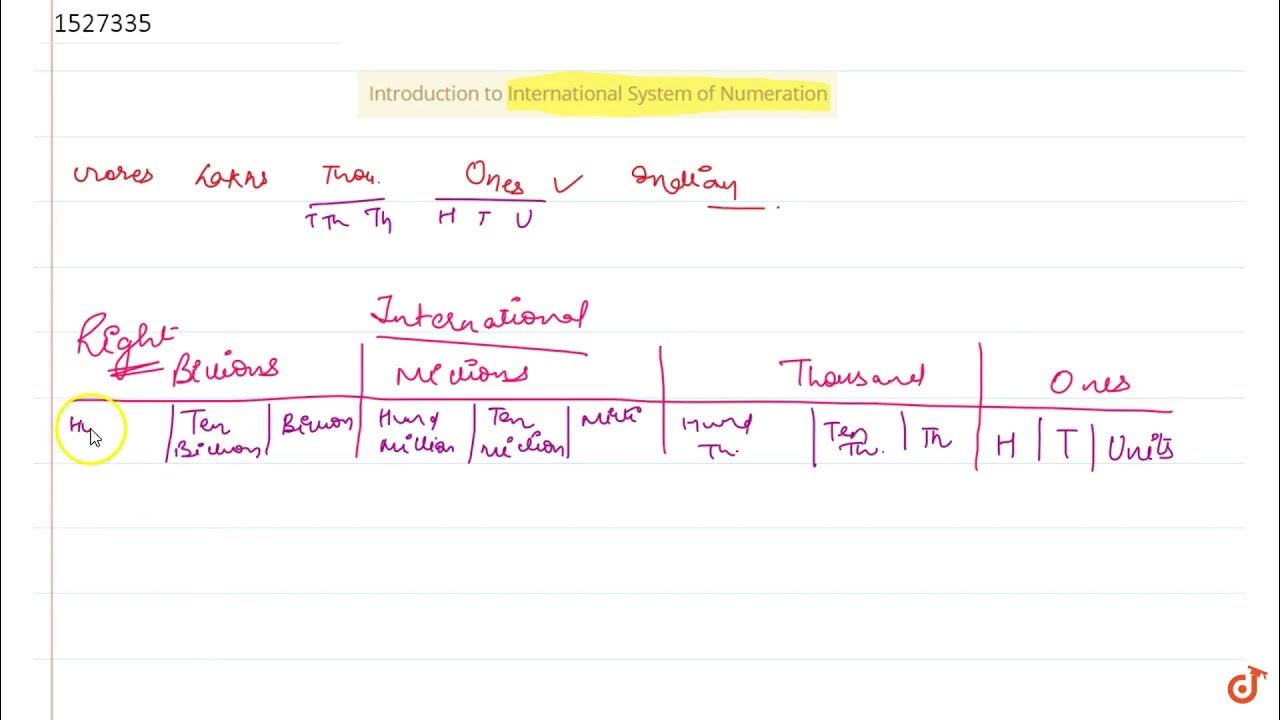 1527335
Introduction to International System of Numeration
crores Lakhs Thou. Ones Indian
T Th Th H T U
International
Right
Billions Millions Thousand Ones
Hu Ten Billion Hund Ten Milli Hund Ten Th H T Units
Billion Million Million Th. Th.